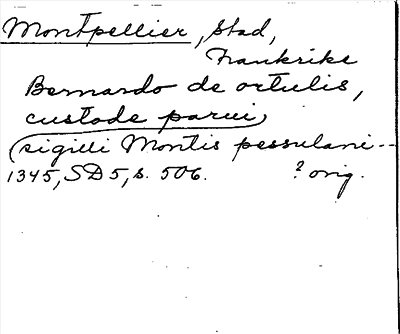 Montpellier, Stad,
Frankrike
Bernardo de ortulis,
custode parui
(sigilli Montis pessulani --
1345, SD 5, s. 506. ? orig.